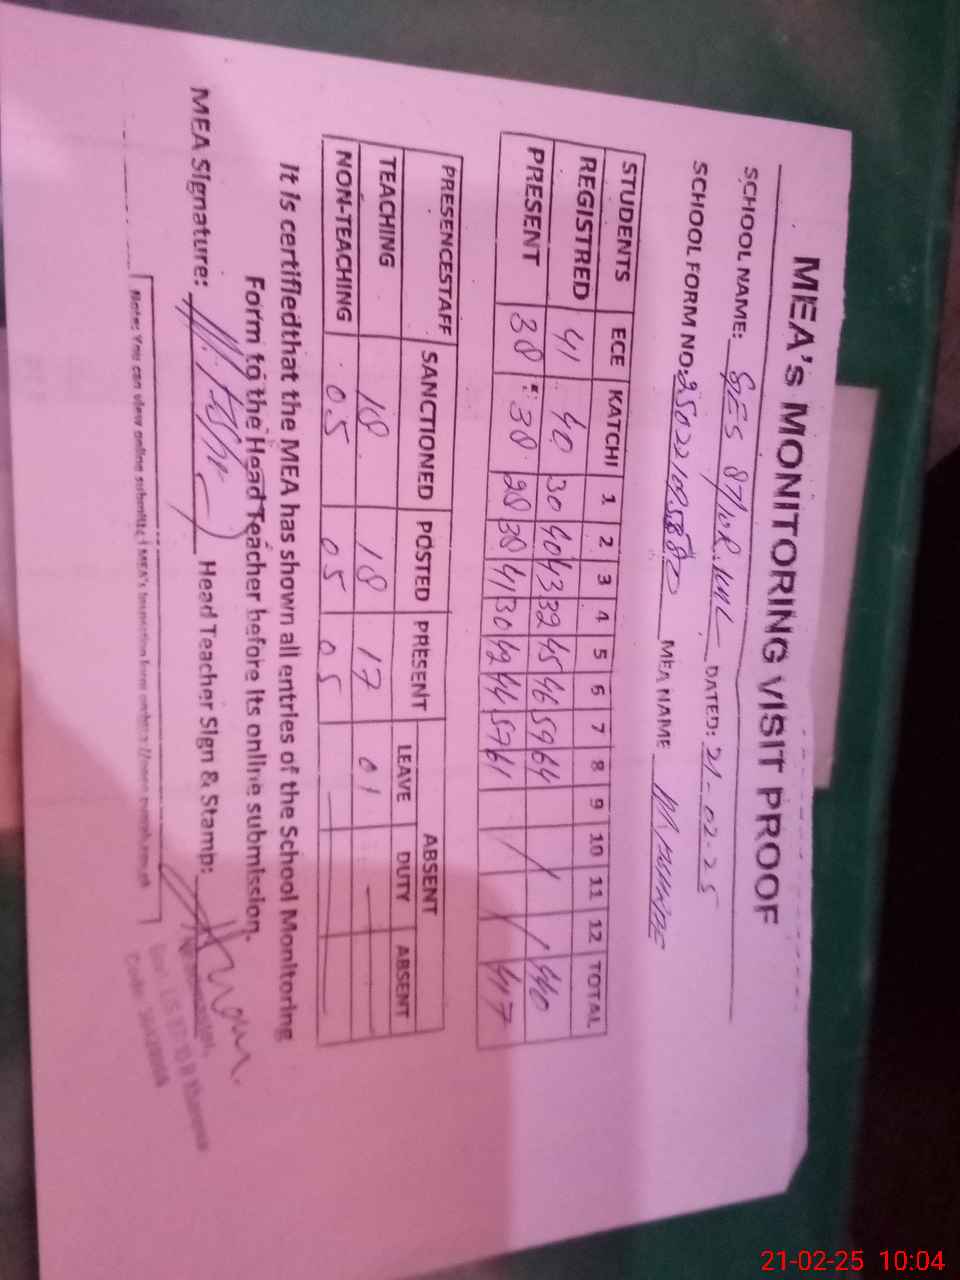 MEA's MONITORING VISIT PROOF
SCHOOL NAME: GES 87/10R KWL DATED: 21-02-25
SCHOOL FORM NO: MEA NAME
STUDENTS ECE KATCHI 1 2 3 4 5 6 7 8 9 10 11 12 TOTAL
REGISTRED 41 40 30 40 43 32 45 46 59 64 440
PRESENT 38 38 28 38 41 30 42 44 57 61 417
PRESENCESTAFF SANCTIONED POSTED PRESENT ABSENT
LEAVE DUTY ABSENT
TEACHING 18 18 17 01
NON-TEACHING 05 05 05
It is certifiedthat the MEA has shown all entries of the School Monitoring
Form to the Head Teacher before its online submission.
MEA Signature: Head Teacher Sign & Stamp:
Note: You can view online submitted MEA's Inspection form
21-02-25 10:04